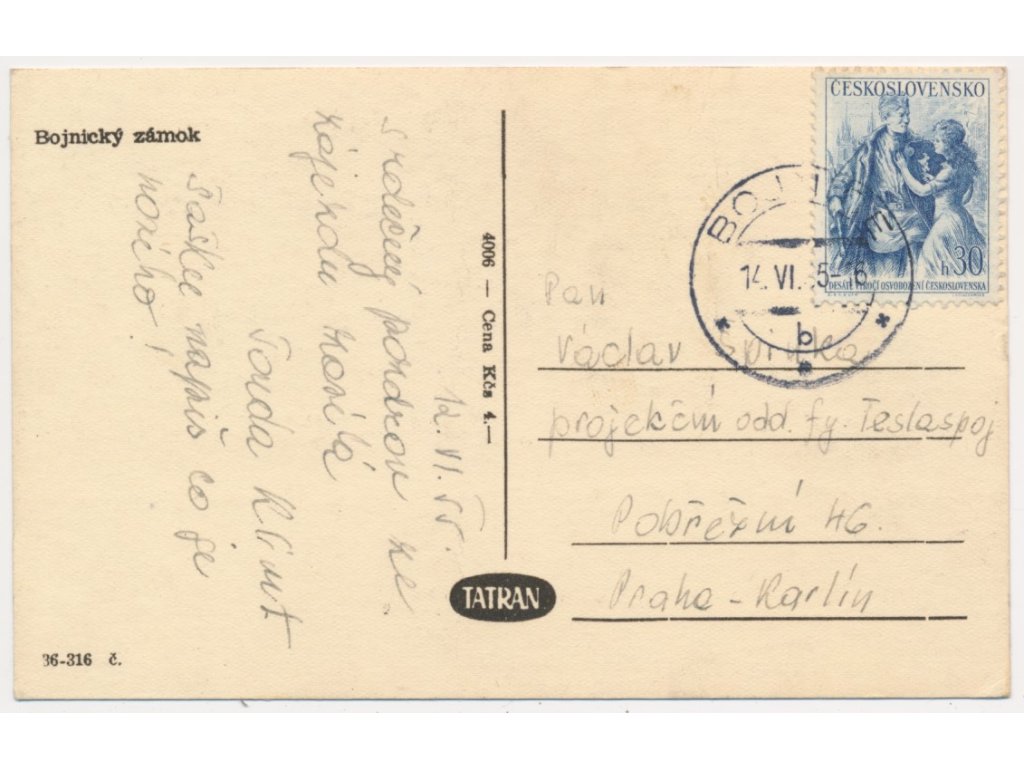 Bojnický zámok
12.VI.55.
srdečný pozdrav ze
zájezdu zasílá
Tonda Klimt
Vašku napiš čo je
nového!
4006 — Cena Kčs 4.—
TATRAN
36-316 č.
ČESKOSLOVENSKO
h 30
DESÁTÉ VÝROČÍ OSVOBOZENÍ ČESKOSLOVENSKA
BOJNICE
14.VI. 55-16
b
Pan
Václav
projekční odd. fy. Teslaspoj
Pobřežní 46.
Praha-Karlín